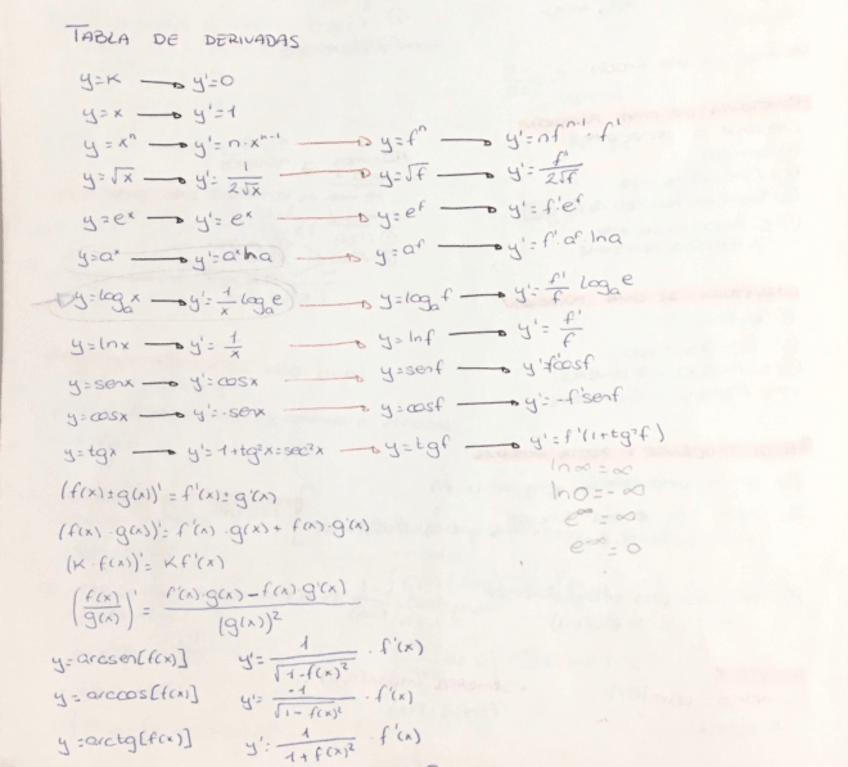 TABLA DE DERIVADAS
y=K → y'=0
y=x → y'=1
y=xⁿ → y'=n·xⁿ⁻¹ → y=fⁿ → y'=nfⁿ⁻¹·f'
y=√x → y'=1/(2√x) → y=√f → y'=f'/(2√f)
y=eˣ → y'=eˣ → y=e^f → y'=f'e^f
y=aˣ → y'=aˣ lna → y=a^f → y'=f'·a^f lna
→ y=logₐx → y'=1/x logₐe → y=logₐf → y'=f'/f logₐe
y=lnx → y'=1/x → y=lnf → y'=f'/f
y=senx → y'=cosx → y=senf → y'=f'cosf
y=cosx → y'=-senx → y=cosf → y'=-f'senf
y=tgx → y'=1+tg²x=sec²x → y=tgf → y'=f'(1+tg²f)
ln∞=∞
(f(x)±g(x))'=f'(x)±g'(x)
ln0=-∞
(f(x)·g(x))'=f'(x)·g(x)+f(x)·g'(x)
e^∞=∞
(K·f(x))'=Kf'(x)
e^-∞=0
(f(x)/g(x))'=(f'(x)·g(x)-f(x)·g'(x))/(g(x))²
y=arcsen[f(x)] y'=1/√(1-f(x)²)·f'(x)
y=arccos[f(x)] y'=-1/√(1-f(x)²)·f'(x)
y=arctg[f(x)] y'=1/(1+f(x)²)·f'(x)